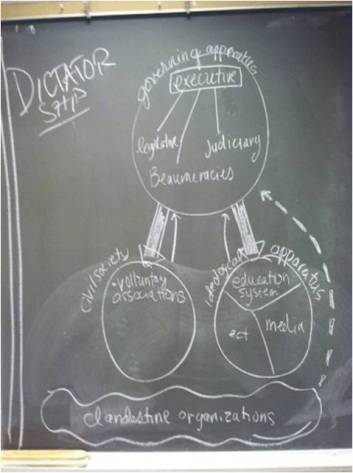 DICTATOR
SHIP
governing apparatus
executive
legislative
Judiciary
Beaumeracies
civil society
• voluntary
associations
ideological apparatus
education
system
ect
media
clandestine organizations